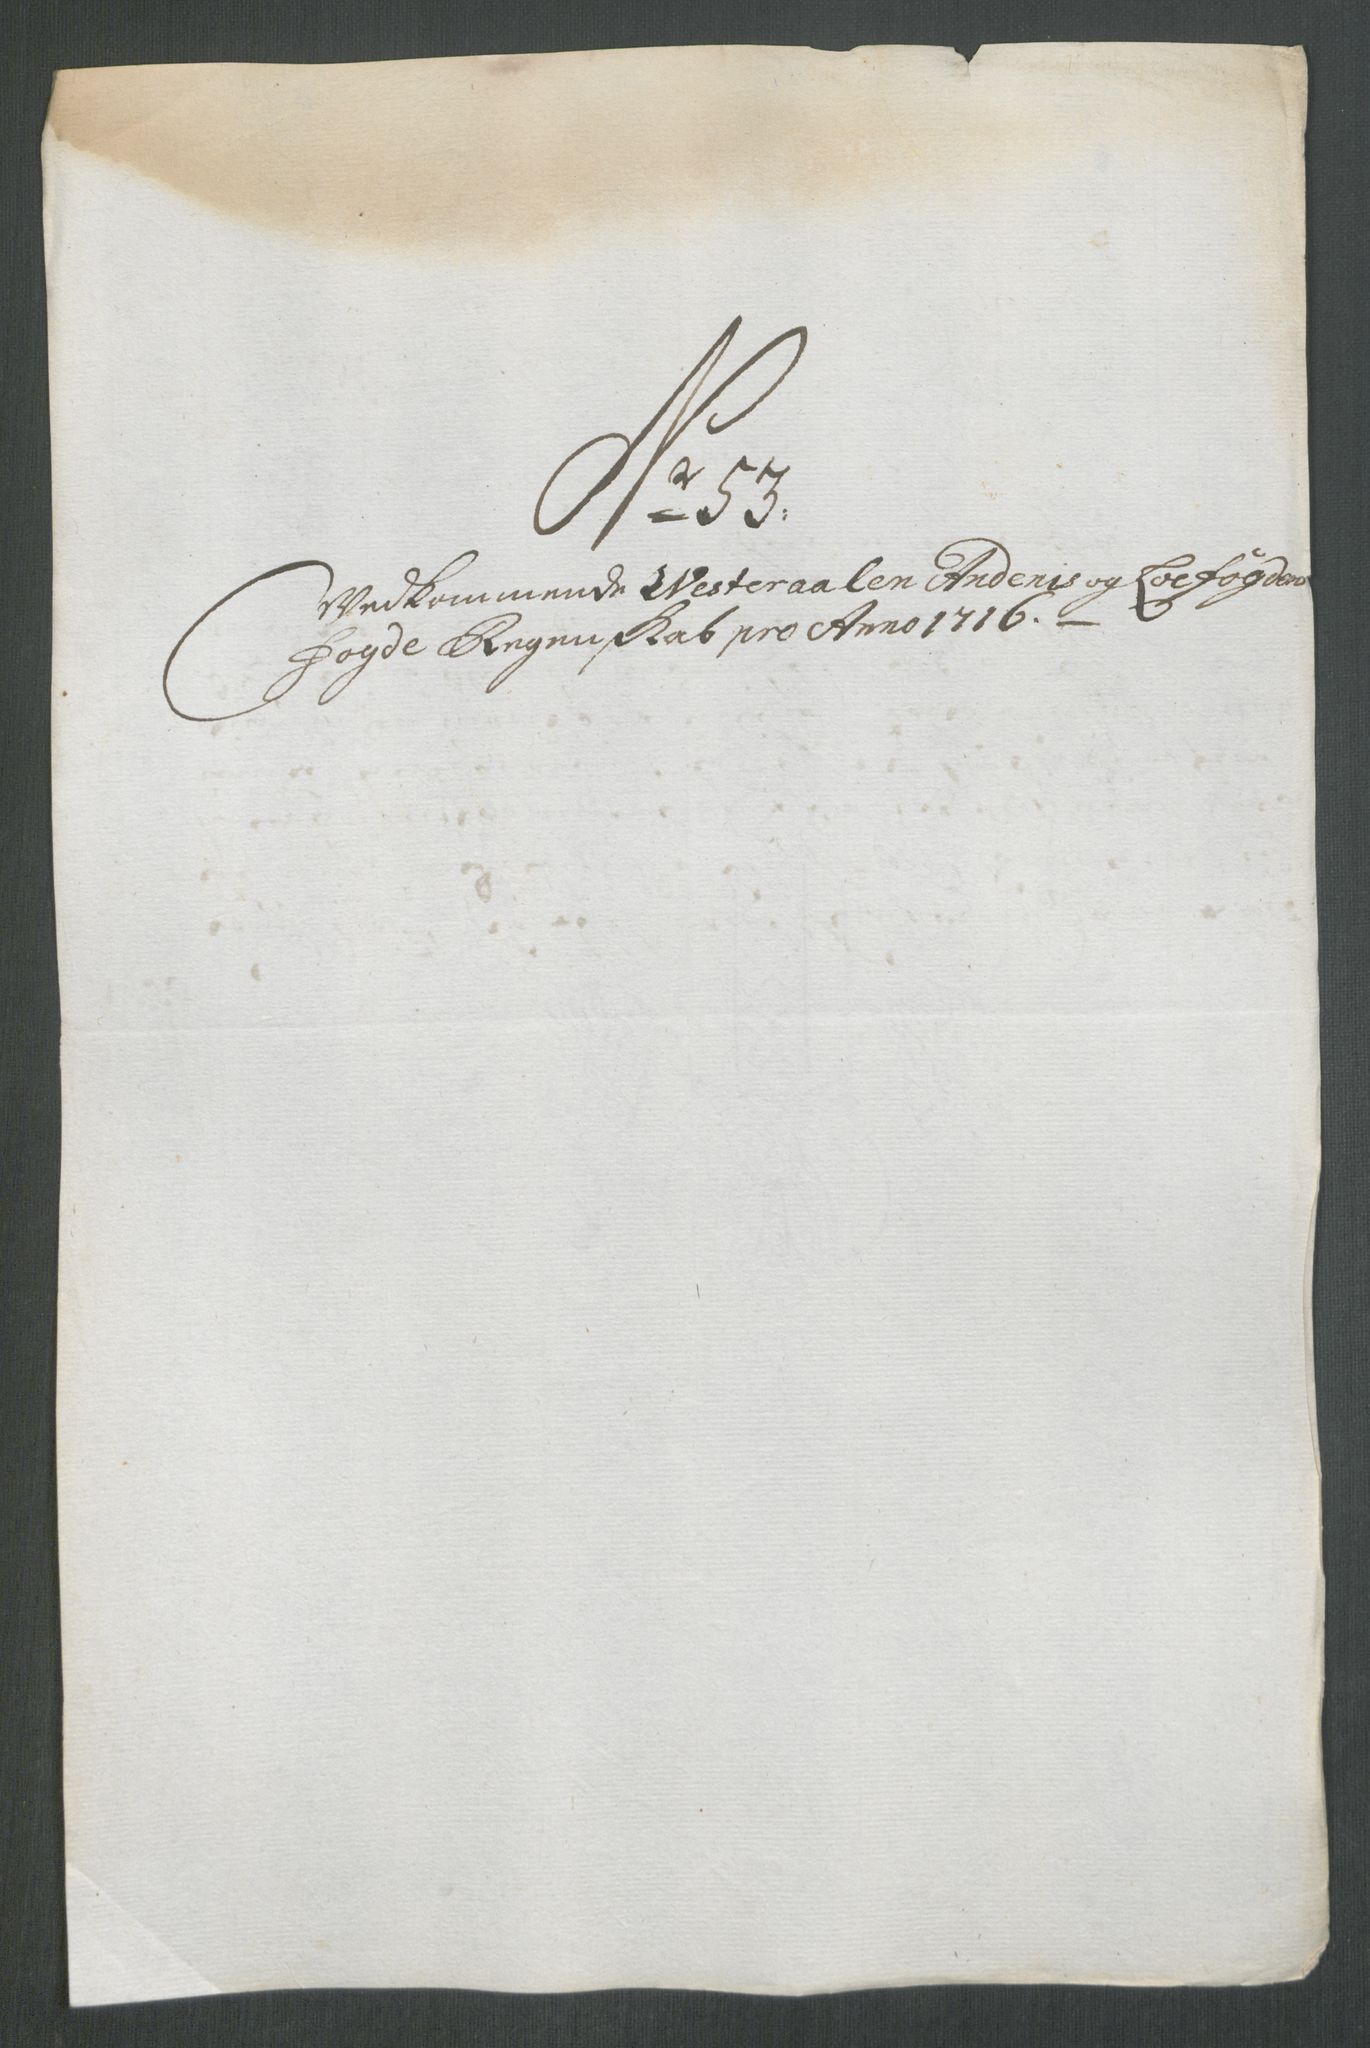 No 53.
Vedkommende Westeraalen Andenis og Loefögdens
fogde Regenskab pro Anno 1716.